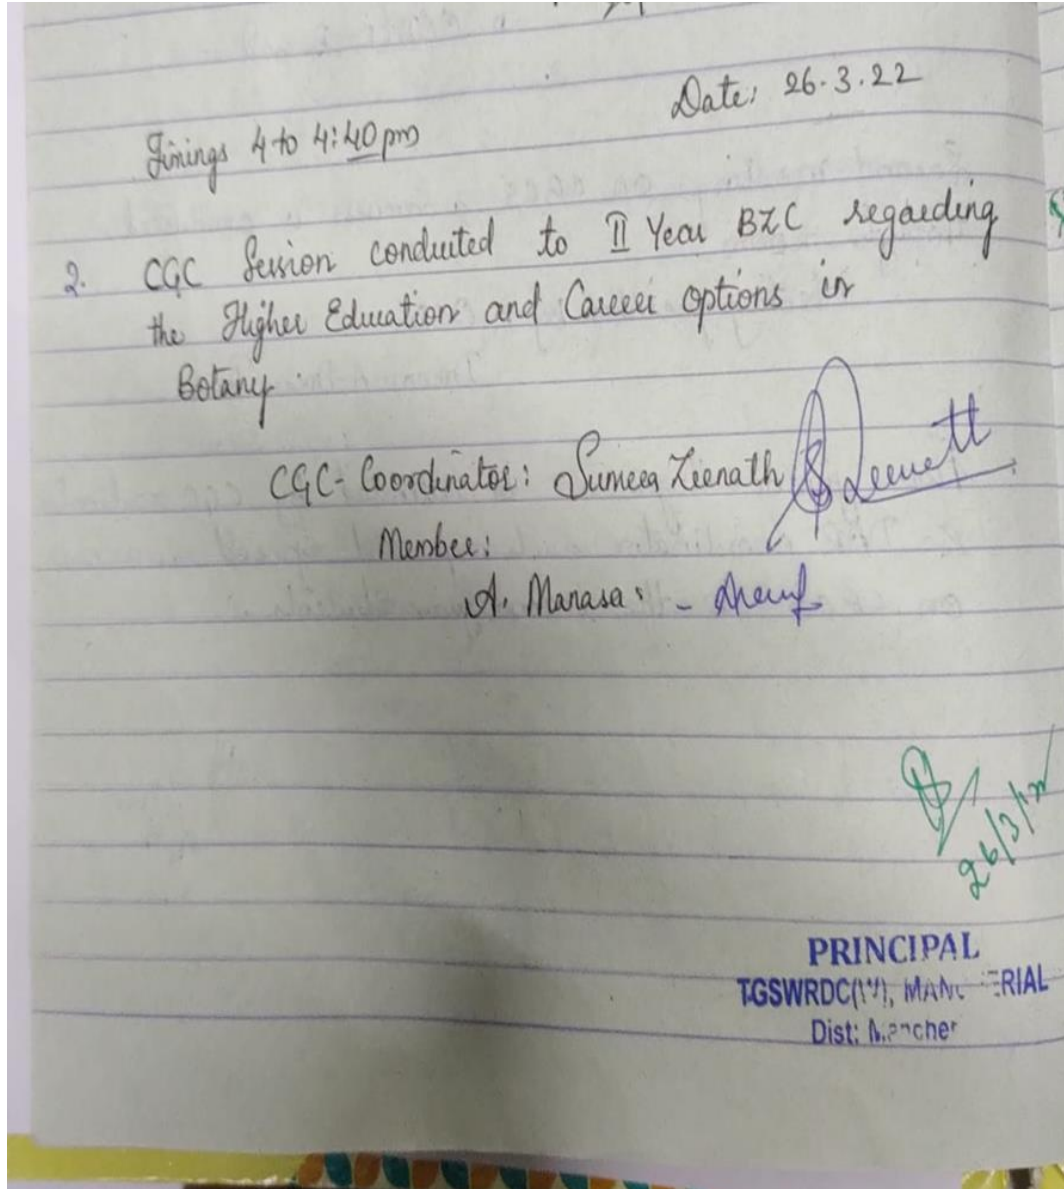 Date: 26.3.22
Timings 4 to 4:40 pm
2. CGC Session conducted to II Year BZC regarding
the Higher Education and Career options in
Botany.
CGC-Coordinator: Sumeea Zeenath
Member:
A. Manasa: -
26/3/22
PRINCIPAL
TGSWRDC(W), MANCHERIAL
Dist: Mancher